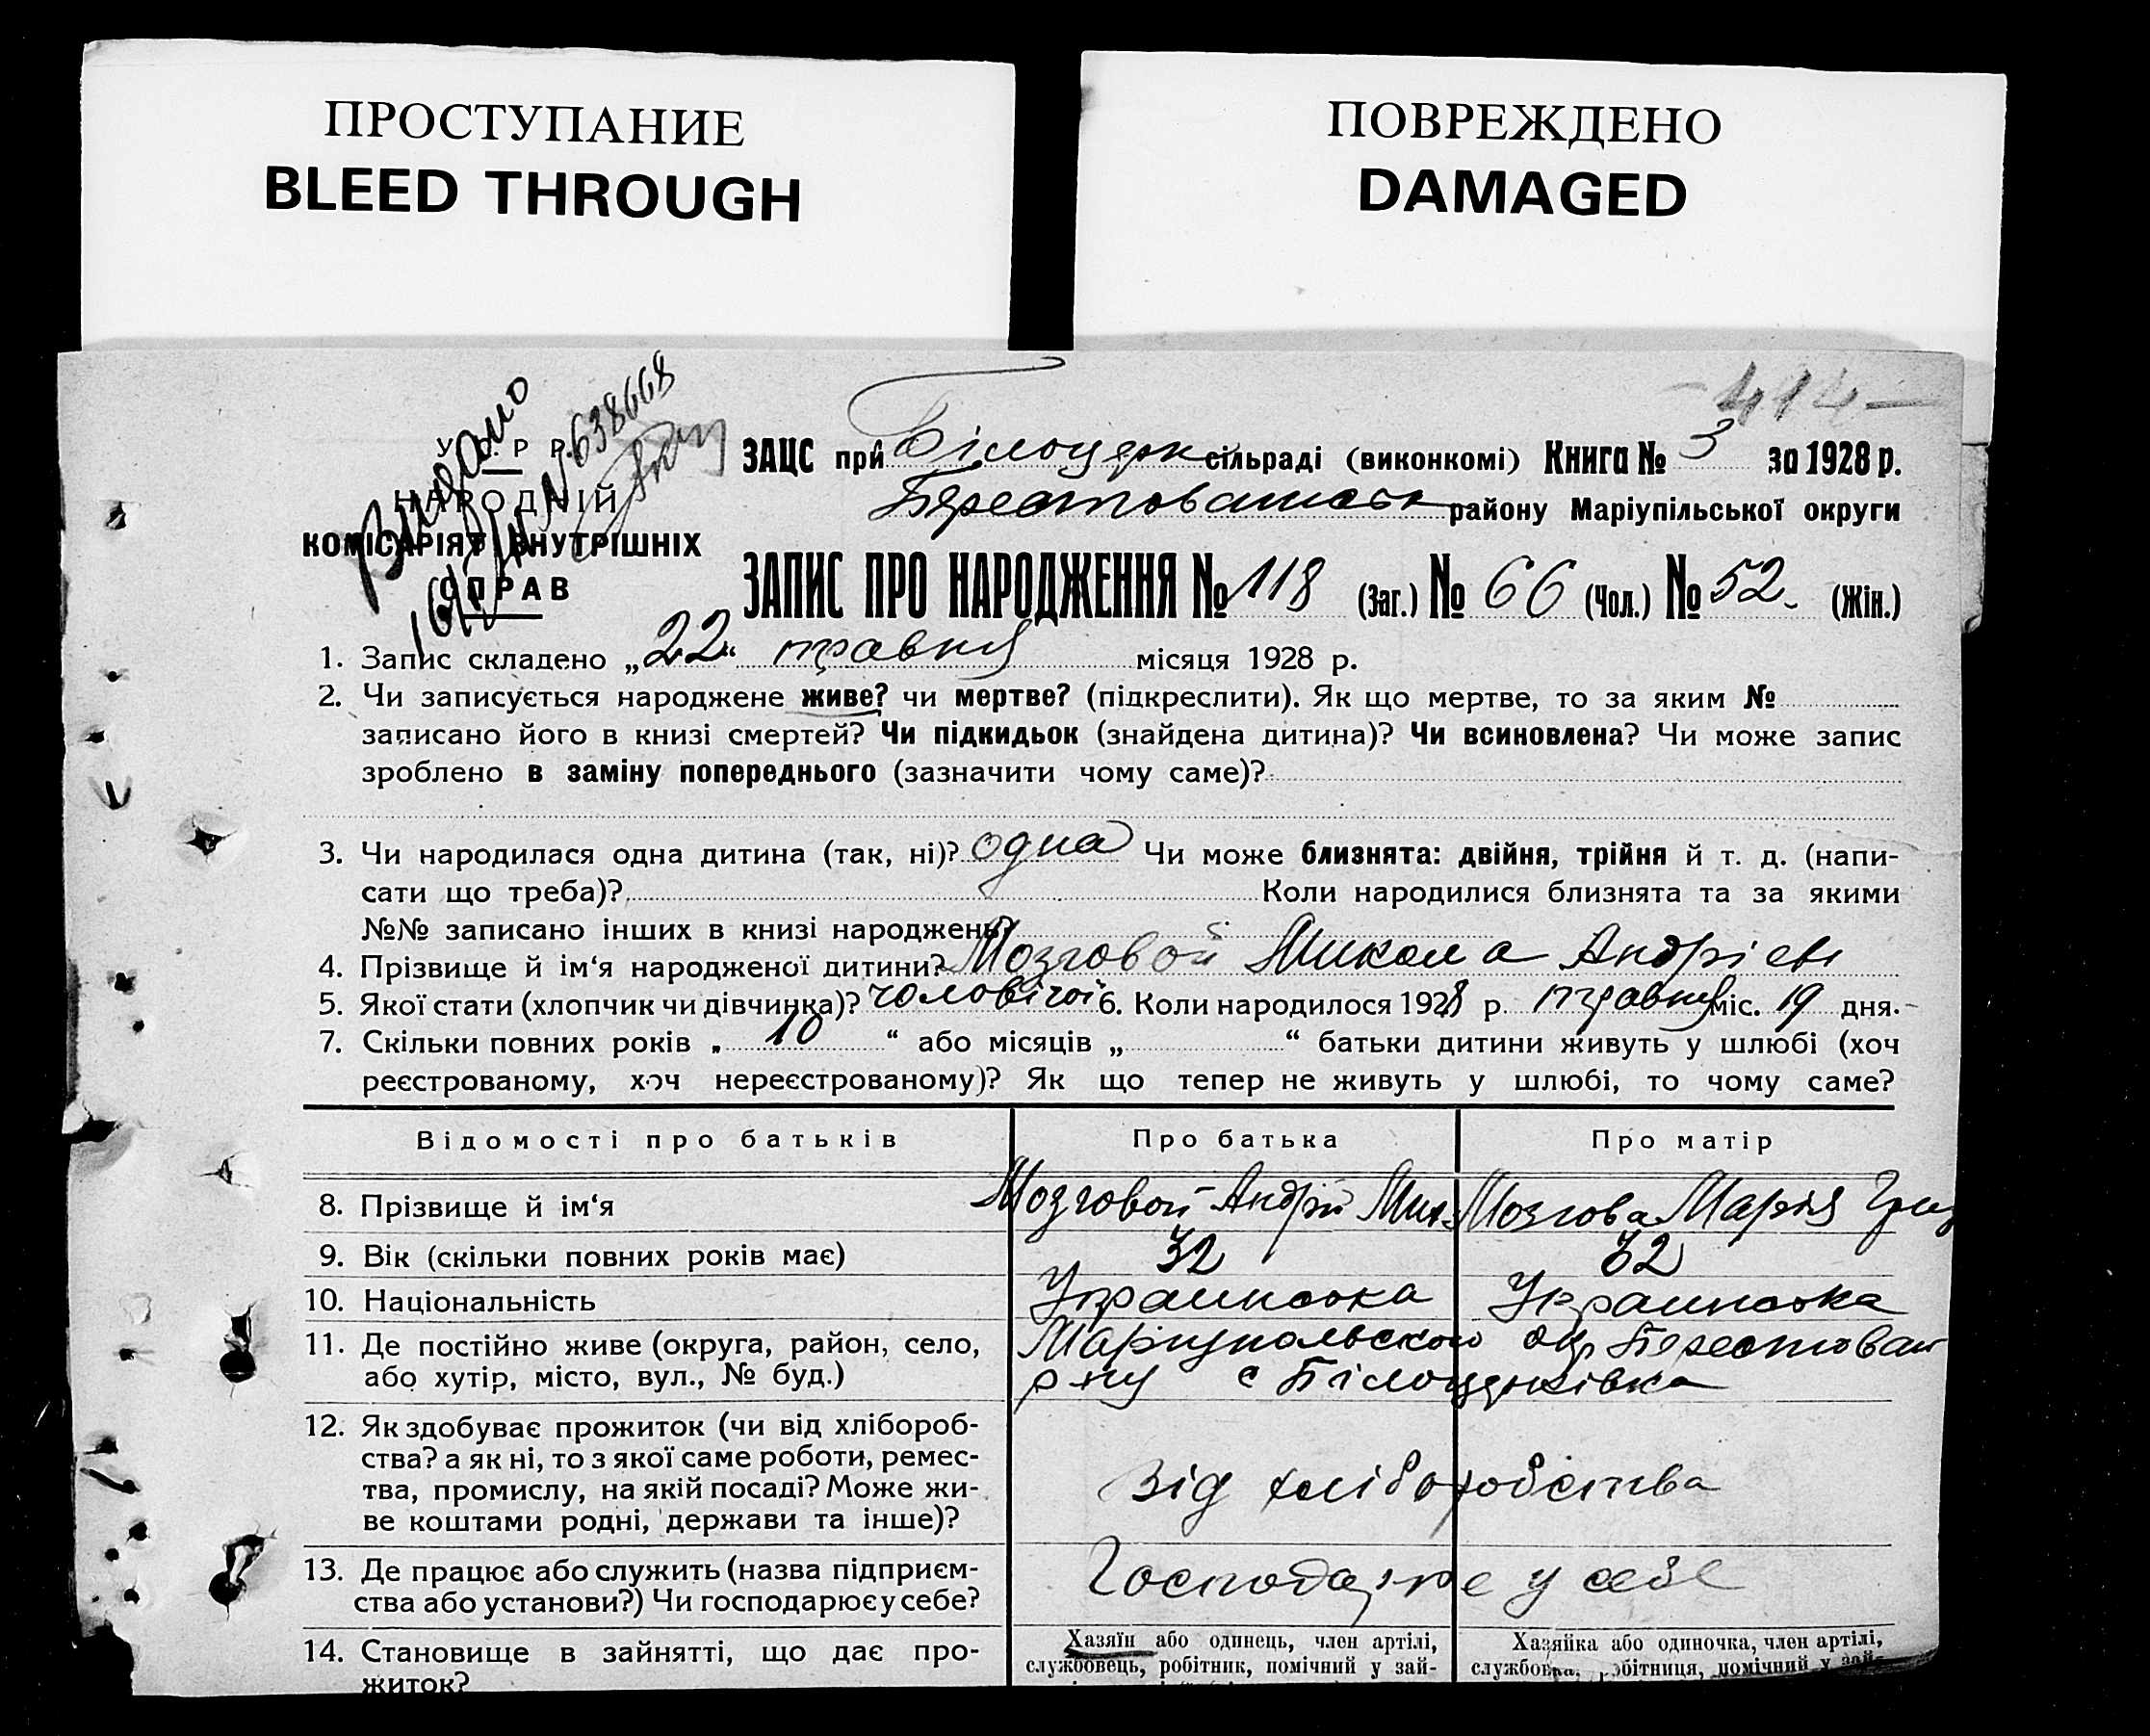 ПРОСТУПАНИЕ
BLEED THROUGH
ПОВРЕЖДЕНО
DAMAGED
-414-
Видано
№ 638668
У. С. Р. Р.
НАРОДНІЙ
КОМІСАРІЯТ ВНУТРІШНІХ
СПРАВ
ЗАЦС при Білоцерк сільраді (виконкомі) Книга № 3 за 1928 р.
району Маріупільської округи
ЗАПИС ПРО НАРОДЖЕННЯ № 118 (Заг.) № 66 (Чол.) № 52 (Жін.)
1. Запис складено „22“ травня місяця 1928 р.
2. Чи записується народжене живе? чи мертве? (підкреслити). Як що мертве, то за яким №
записано його в книзі смертей? Чи підкидьок (знайдена дитина)? Чи всиновлена? Чи може запис
зроблено в заміну попереднього (зазначити чому саме)?
3. Чи народилася одна дитина (так, ні)? одна Чи може близнята: двійня, трійня й т. д. (напи-
сати що треба)? Коли народилися близнята та за якими
№№ записано інших в книзі народжень?
4. Прізвище й ім‘я народженої дитини? Мозговой Микола Андрієв
5. Якої стати (хлопчик чи дівчинка)? чоловічої 6. Коли народилося 1928 р. травня міс. 19 дня.
7. Скільки повних років „ 10 “ або місяців „ “ батьки дитини живуть у шлюбі (хоч
реєстрованому, хоч нереєстрованому)? Як що тепер не живуть у шлюбі, то чому саме?
Відомості про батьків Про батька Про матір
8. Прізвище й ім‘я Мозговой Андрій Мих Мозгова Марія Григ
9. Вік (скільки повних років має) 32 32
10. Національність Украинська Украинська
11. Де постійно живе (округа, район, село, Маріупольскою окр Берестован
або хутір, місто, вул., № буд.) р-ну с Білоцерківка
12. Як здобуває прожиток (чи від хлібороб-
ства? а як ні, то з якої саме роботи, ремес-
тва, промислу, на якій посаді? Може жи-
ве коштами родні, держави та інше)?
Від хліборобства
13. Де працює або служить (назва підприєм-
ства або установи?) Чи господарює у себе?
Господарює у себе
14. Становище в зайнятті, що дає про-
житок?
Хазяїн або одинець, член артілі,
службовець, робітник, помічний у зай-
Хазяйка або одиночка, член артілі,
службовка, робітниця, помічний у зай-